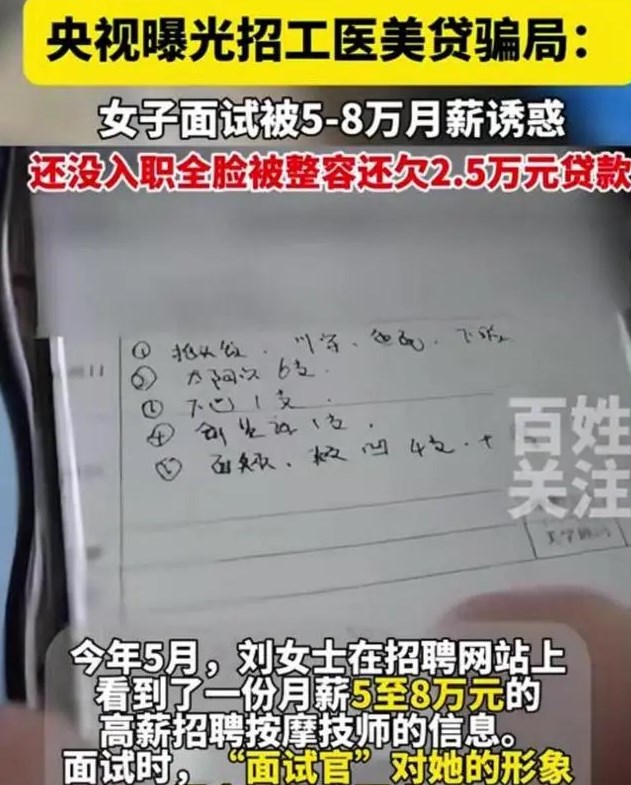 央视曝光招工医美贷骗局：
女子面试被5-8万月薪诱惑
还没入职全脸被整容还欠2.5万元贷款
① 抬头纹．川字．鱼尾．下
② 太阳穴 6支．
③ 下巴 1支．
④ 1支．
⑤ 凹 4支．+
百姓
关注
今年5月，刘女士在招聘网站上
看到了一份月薪5至8万元的
高薪招聘按摩技师的信息。
面试时，“面试官”对她的形象